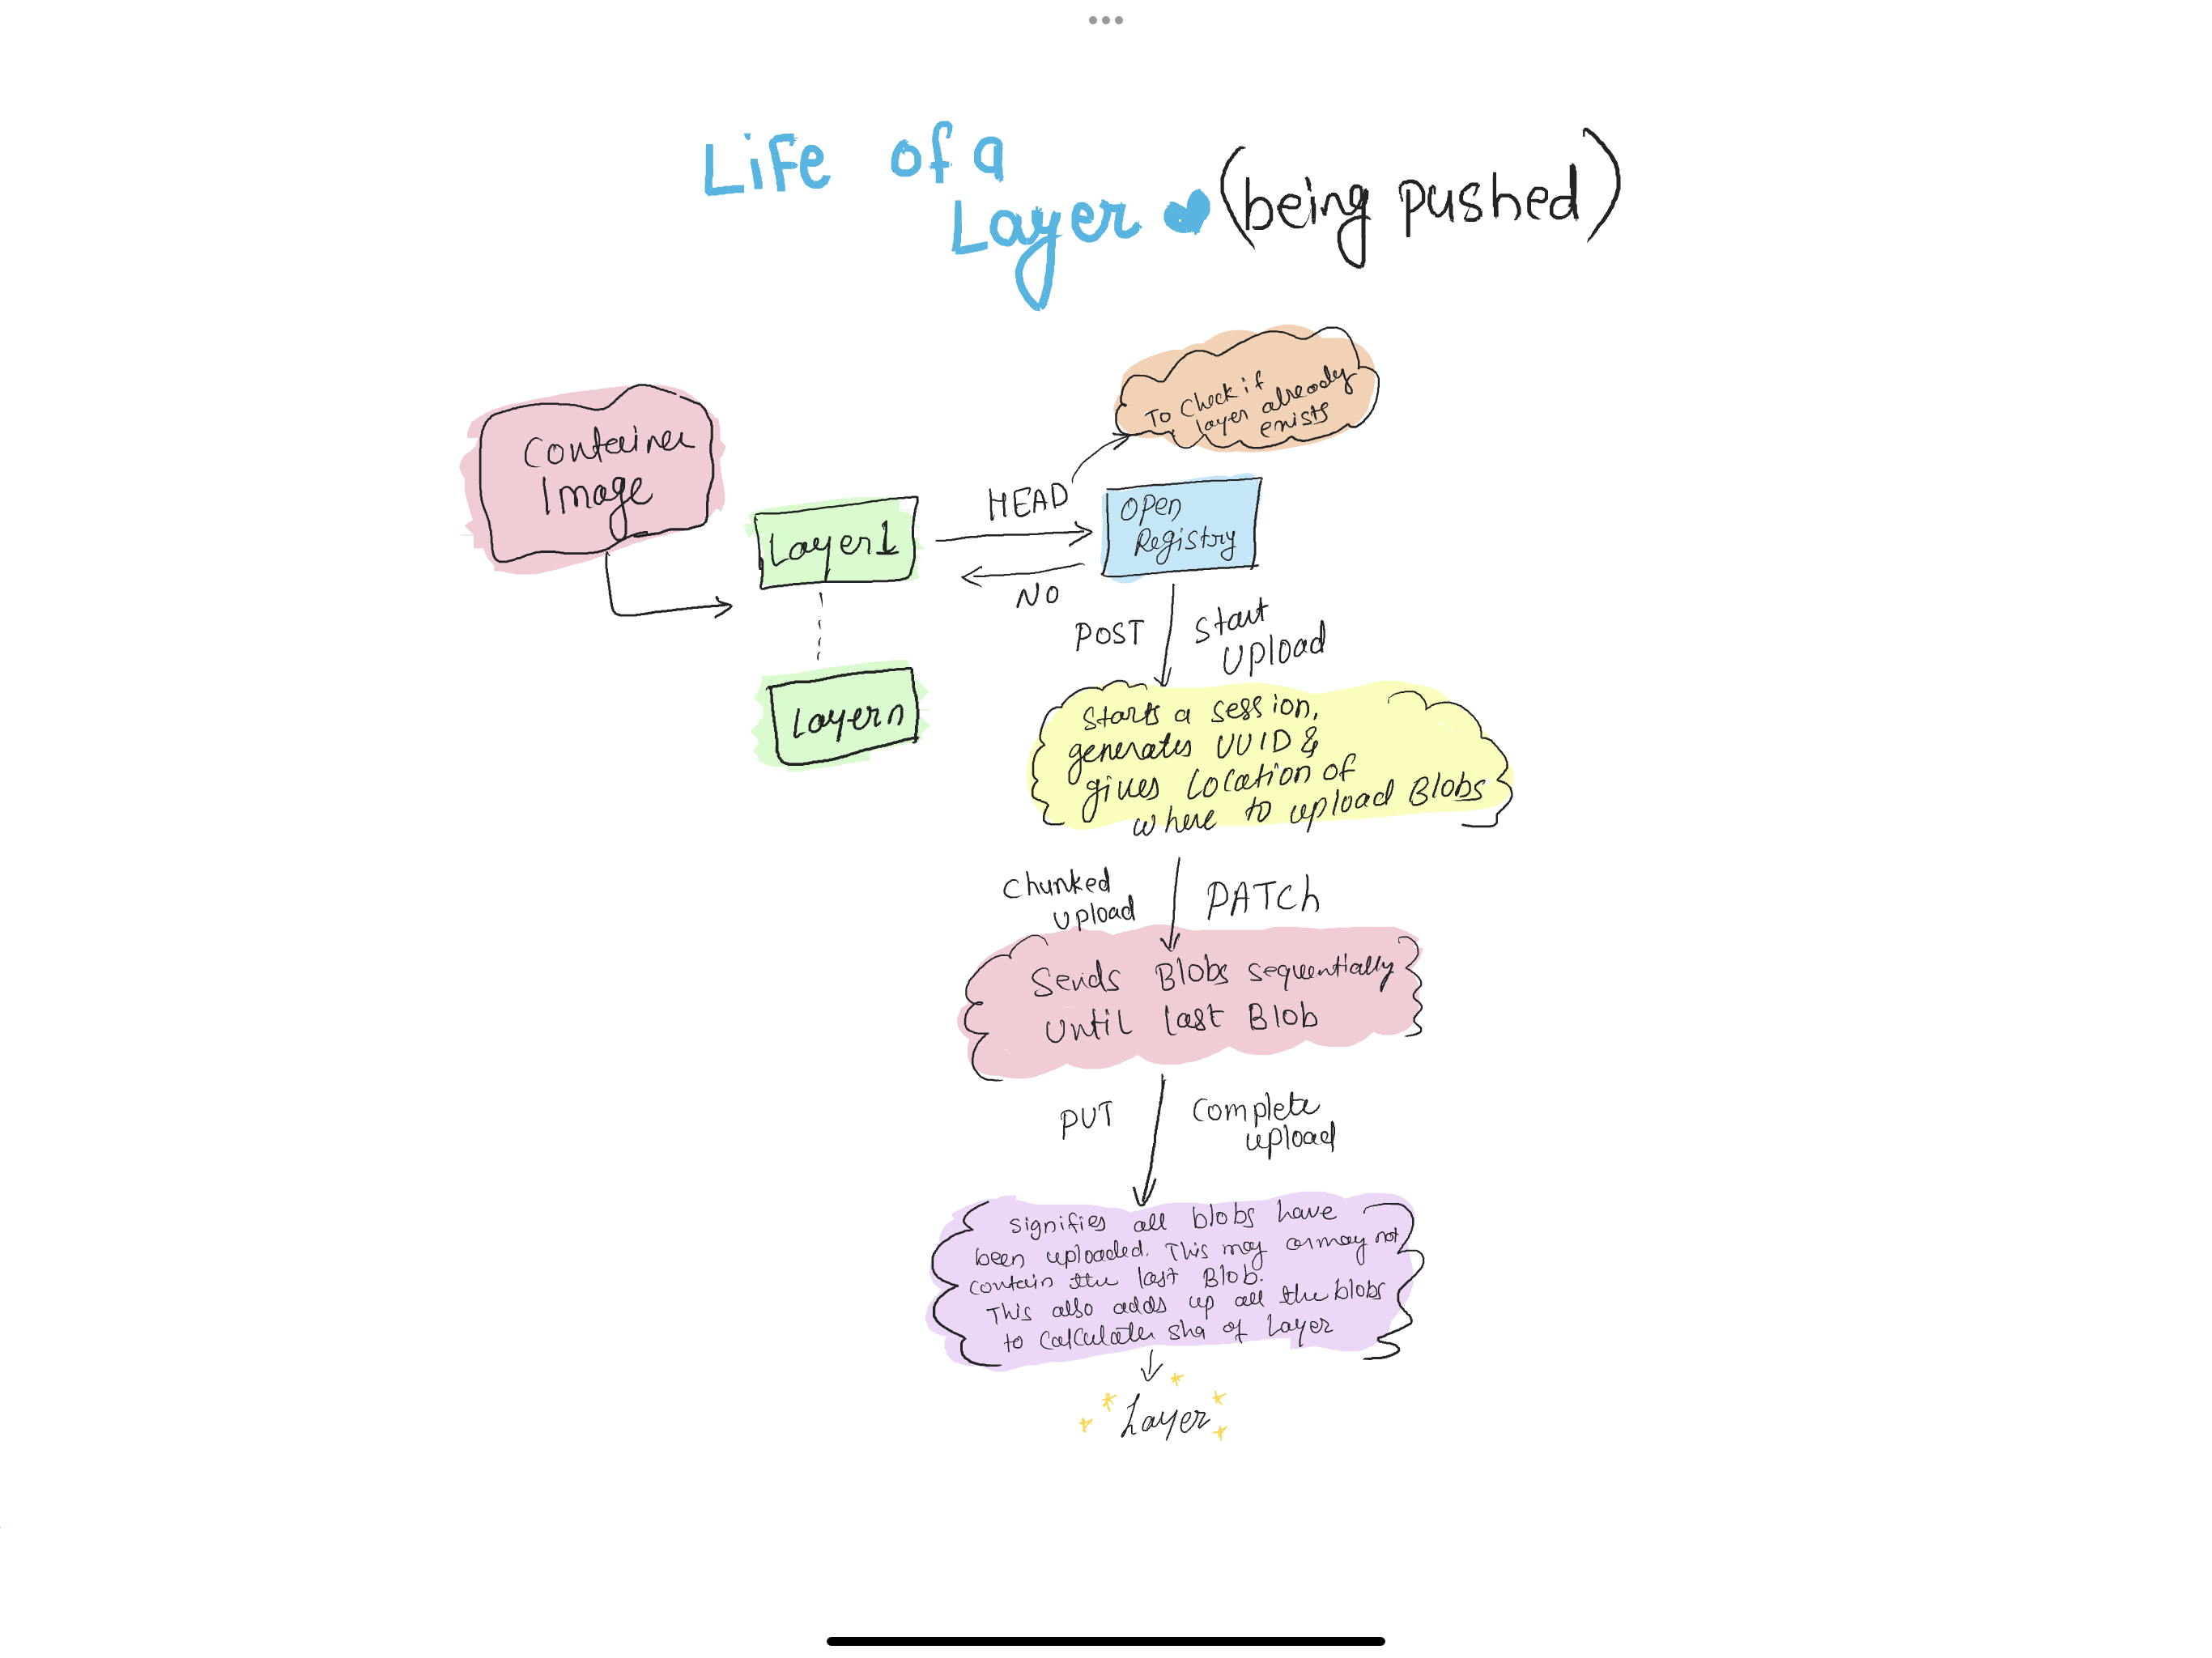 Life of a
Layer (being pushed)
To Check if
layer already
exists
Container
Image
Layer1
HEAD
Open
Registry
NO
POST
Start
Upload
Layer n
Starts a session,
generates UUID &
gives location of
where to upload Blobs
Chunked
upload
PATCh
Sends Blobs sequentially
Until last Blob
PUT
Complete
upload
signifies all blobs have
been uploaded. This may or may not
contain the last Blob.
This also adds up all the blobs
to calculate sha of Layer
Layer